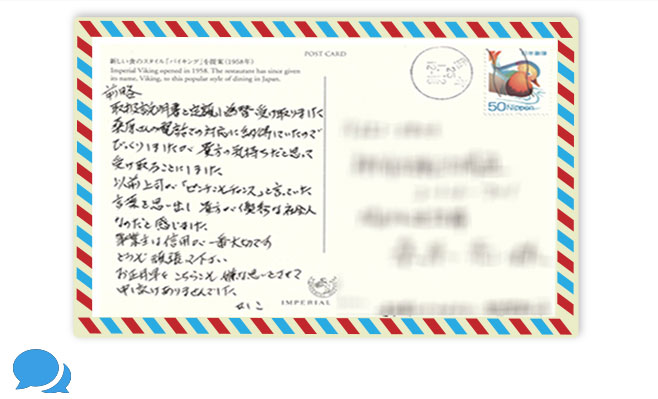 POST CARD
新しい食のスタイル「バイキング」を提案(1958年)
Imperial Viking opened in 1958. The restaurant has since given
its name, Viking, to this popular style of dining in Japan.
50 Nippon
日本郵便
前略
取扱説明書と定額小為替受け取りました
桑原さんの電話での対応に納得していたので
びっくりしましたが 貴方の気持ちだと思って
受け取ることにしました。
以前上司が「ピンチもチャンス」と言っていた
言葉を思い出し 貴方が優秀な社会人
なのだと感じました。
事業主は信用が一番大切です
どうぞ頑張って下さい
お正月早々こちらこそ嫌な思いをさせて
申し訳ありませんでした。
かしこ
IMPERIAL